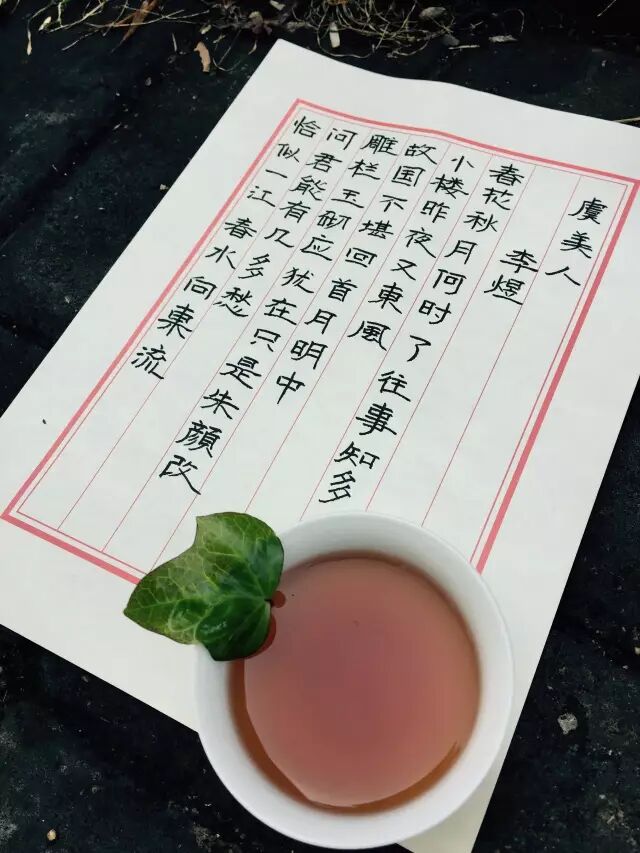 虞美人
李煜
春花秋月何时了往事知多
小楼昨夜又東風
故国不堪回首月明中
雕栏玉砌应犹在只是朱顔改
问君能有几多愁
恰似一江春水向東流